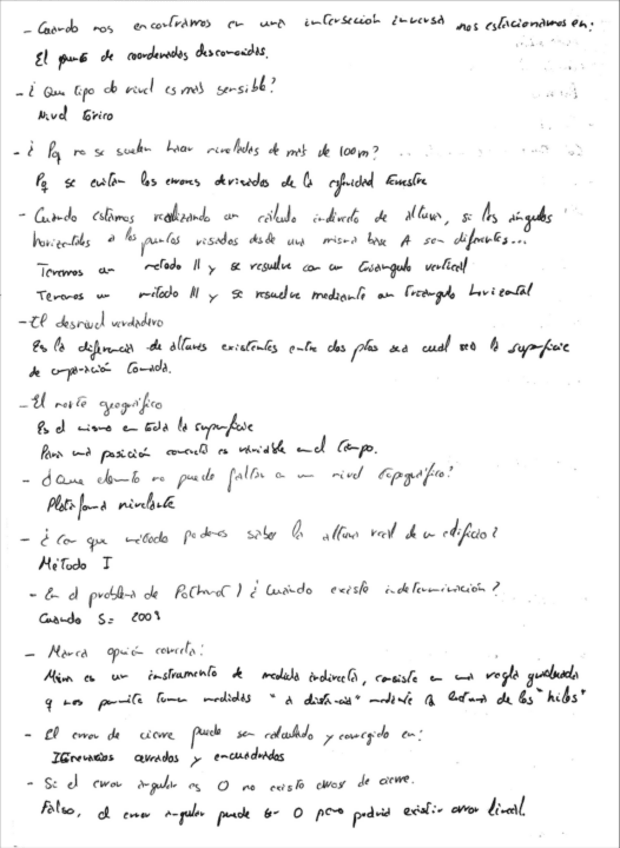 - Cuando nos encontramos en una intersección inversa nos estacionamos en:
El punto de coordenadas desconocidas.
- ¿Que tipo de nivel es más sensible?
Nivel tórico
- ¿Pq no se suelen hacer niveladas de más de 100m?
Pq se evitan los errores derivados de la esfericidad terrestre
- Cuando estamos realizando un cálculo indirecto de altura, si los ángulos
horizontales a los puntos visados desde una misma base A son diferentes...
Tenemos un método II y se resuelve con un triángulo vertical
Tenemos un método III y se resuelve mediante un triángulo horizontal
- El desnivel verdadero
Es la diferencia de alturas existentes entre dos ptos sea cual sea la superficie
de comparación tomada.
- El norte geográfico
Es el mismo en toda la superficie
Para una posición concreta es variable en el tiempo.
- ¿Que elemento no puede faltar a un nivel topográfico?
Plataforma nivelante
- ¿Con que método podemos saber la altura real de un edificio?
Método I
- En el problema de Pothenot ¿Cuándo existe indeterminación?
Cuando S= 200g
- Marca opción correcta:
Mira es un instrumento de medida indirecta, consiste en una regla graduada
y nos permite tomar medidas "a distancia" mediante la lectura de los "hilos"
- El error de cierre puede ser calculado y corregido en:
Itinerarios cerrados y encuadrados
- Si el error angular es 0 no existe error de cierre.
Falso, el error angular puede ser 0 pero podría existir error lineal.